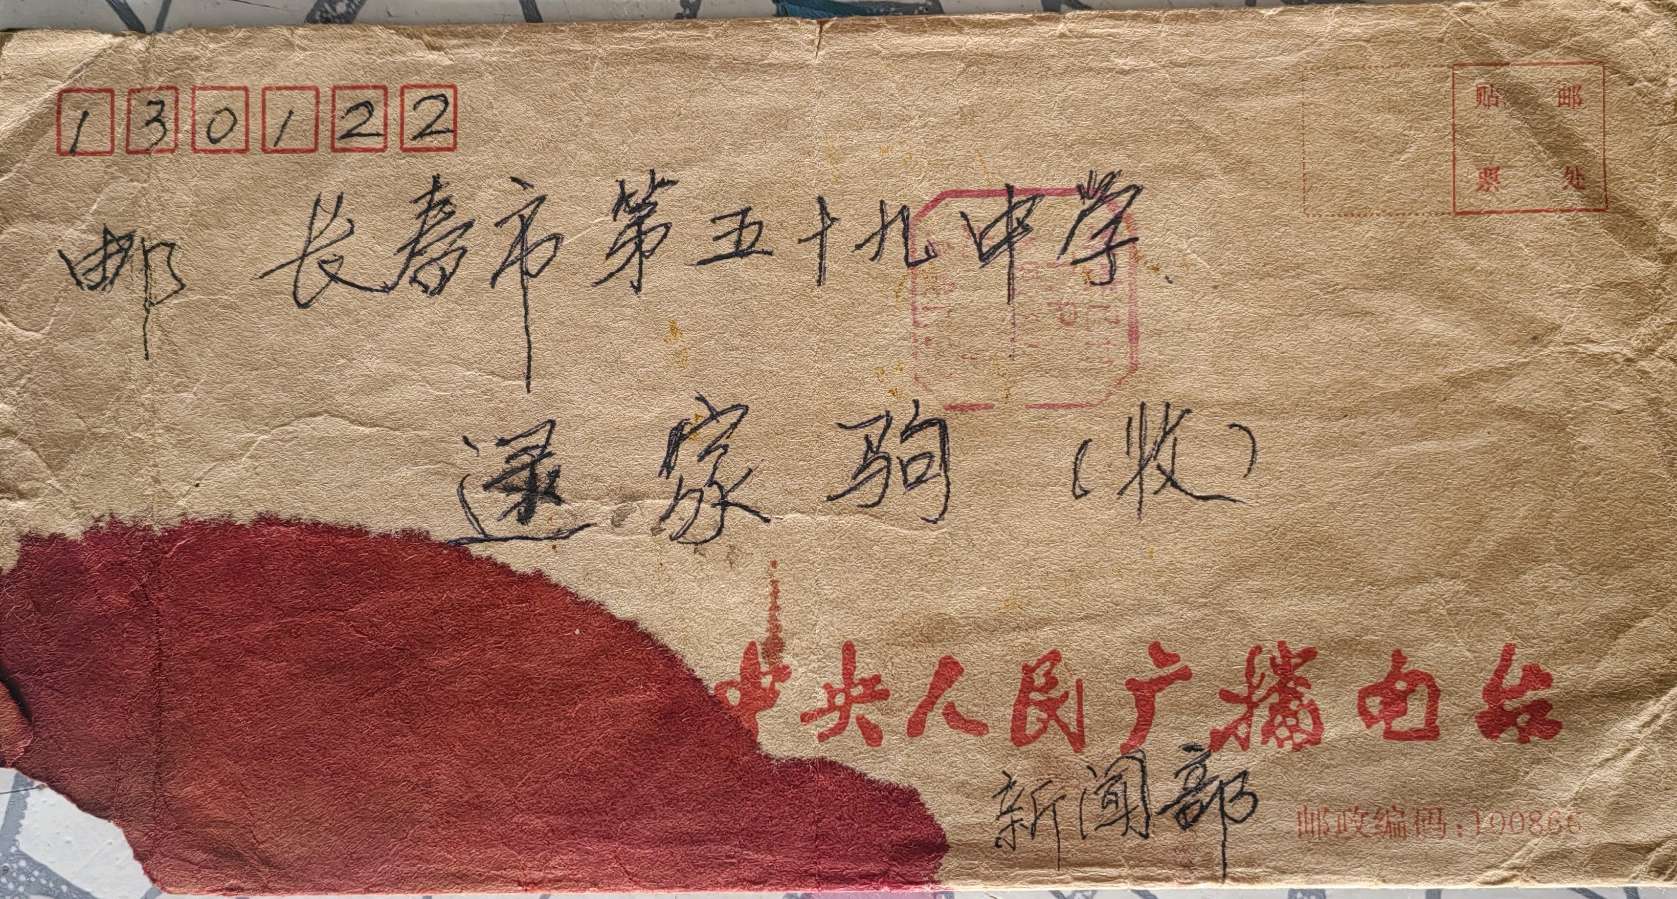 130122
贴 邮
票 处
邮 长春市第五十九中学
逯家驹(收)
中央人民广播电台
新闻部
邮政编码:100866